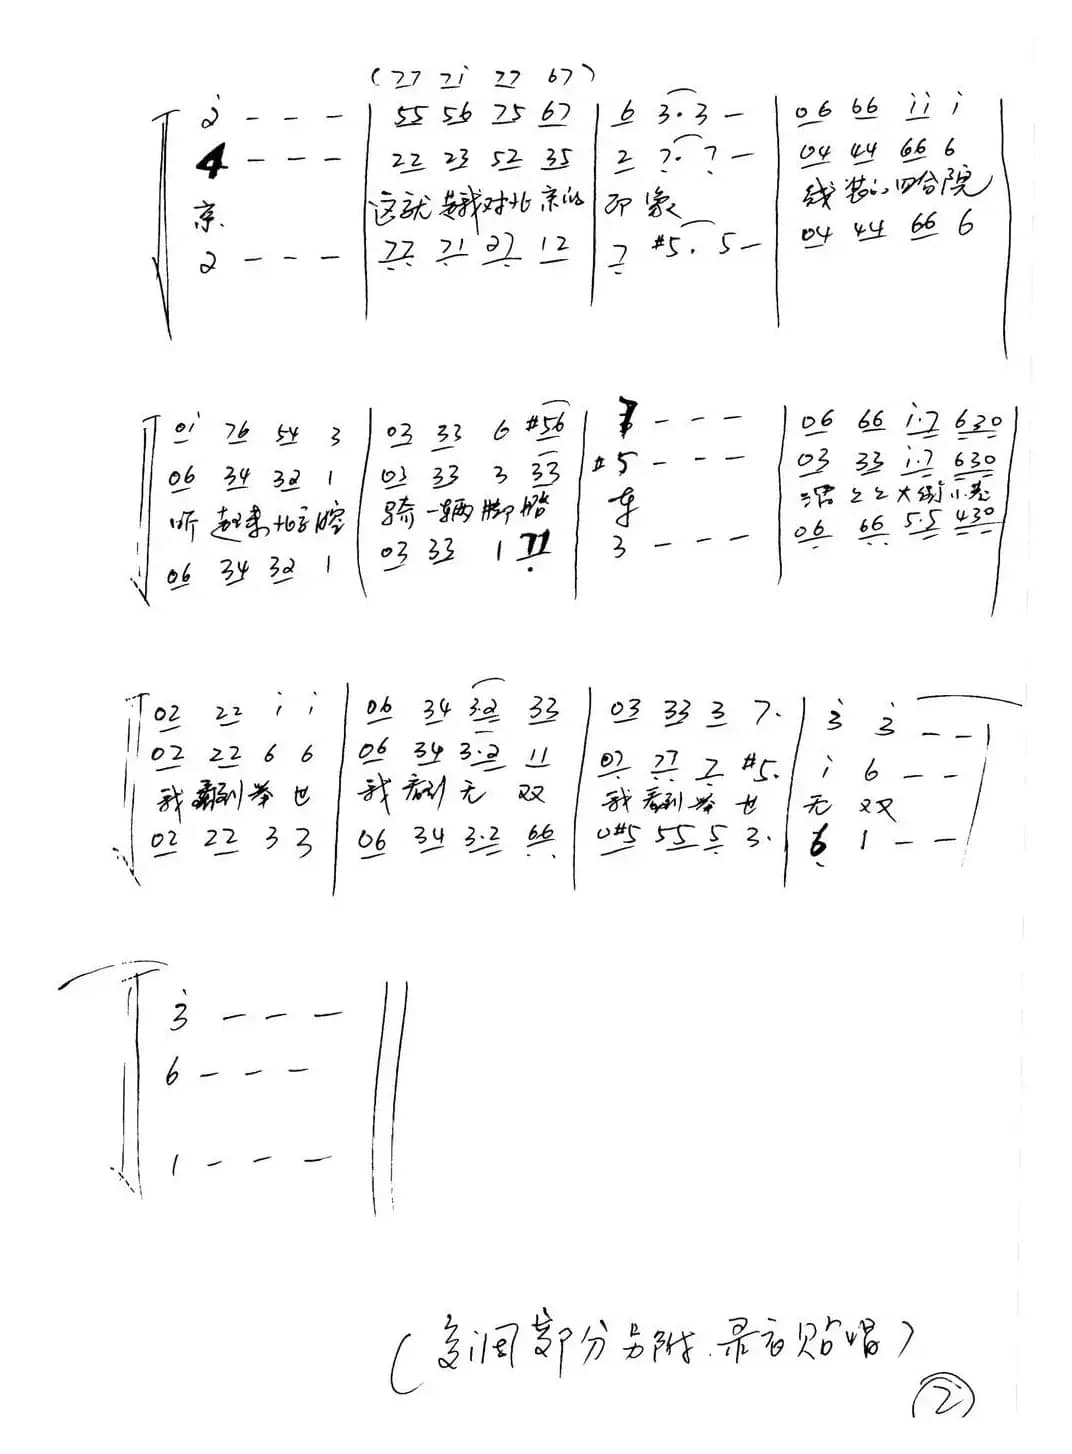 (77 7i 77 67)
2̇ - - - | 55 56 75 67 | 6 3·3 - | 06 66 ii i
4 - - - | 22 23 52 35 | 2 7·7 - | 04 44 66 6
京 这就是我对北京的 印象 线装的四合院
2 - - - | 77 71 27 12 | 7 #5· 5 - | 04 44 66 6
0i 76 54 3 | 03 33 6 #56 | 7 - - - | 06 66 i·7 630
06 34 32 1 | 03 33 3 33 | #5 - - - | 03 33 i·7 630
听起来北京腔 骑一辆脚踏 车 大街小巷
06 34 32 1 | 03 33 1 77 | 3 - - - | 06 66 5·5 430
02 22 i i | 06 34 3·2 33 | 03 33 3 7· | 3̇ 3̇ - -
02 22 6 6 | 06 34 3·2 11 | 07 77 7 #5· | i 6 - -
我看到举世 我看到无双 我看到举世 无双
02 22 3 3 | 06 34 3·2 66 | 0#5 55 5 3· | 6 1 - -
3̇ - - -
6 - - -
1 - - -
(复调部分另附.录音贴唱)
②